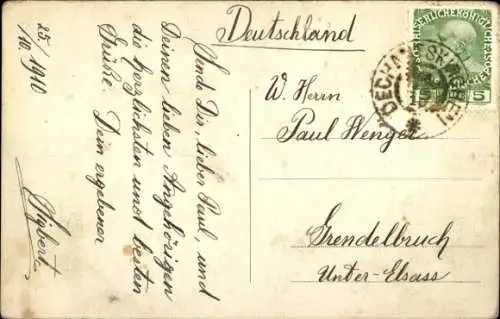 25/10 1910
Sende Dir, lieber Paul, und
Deinen lieben Angehörigen
die herzlichsten und besten
Grüße. Dein ergebener
Deutschland
W. Herrn
Paul Wenger
Grendelbruch
Unter-Elsass
5 5